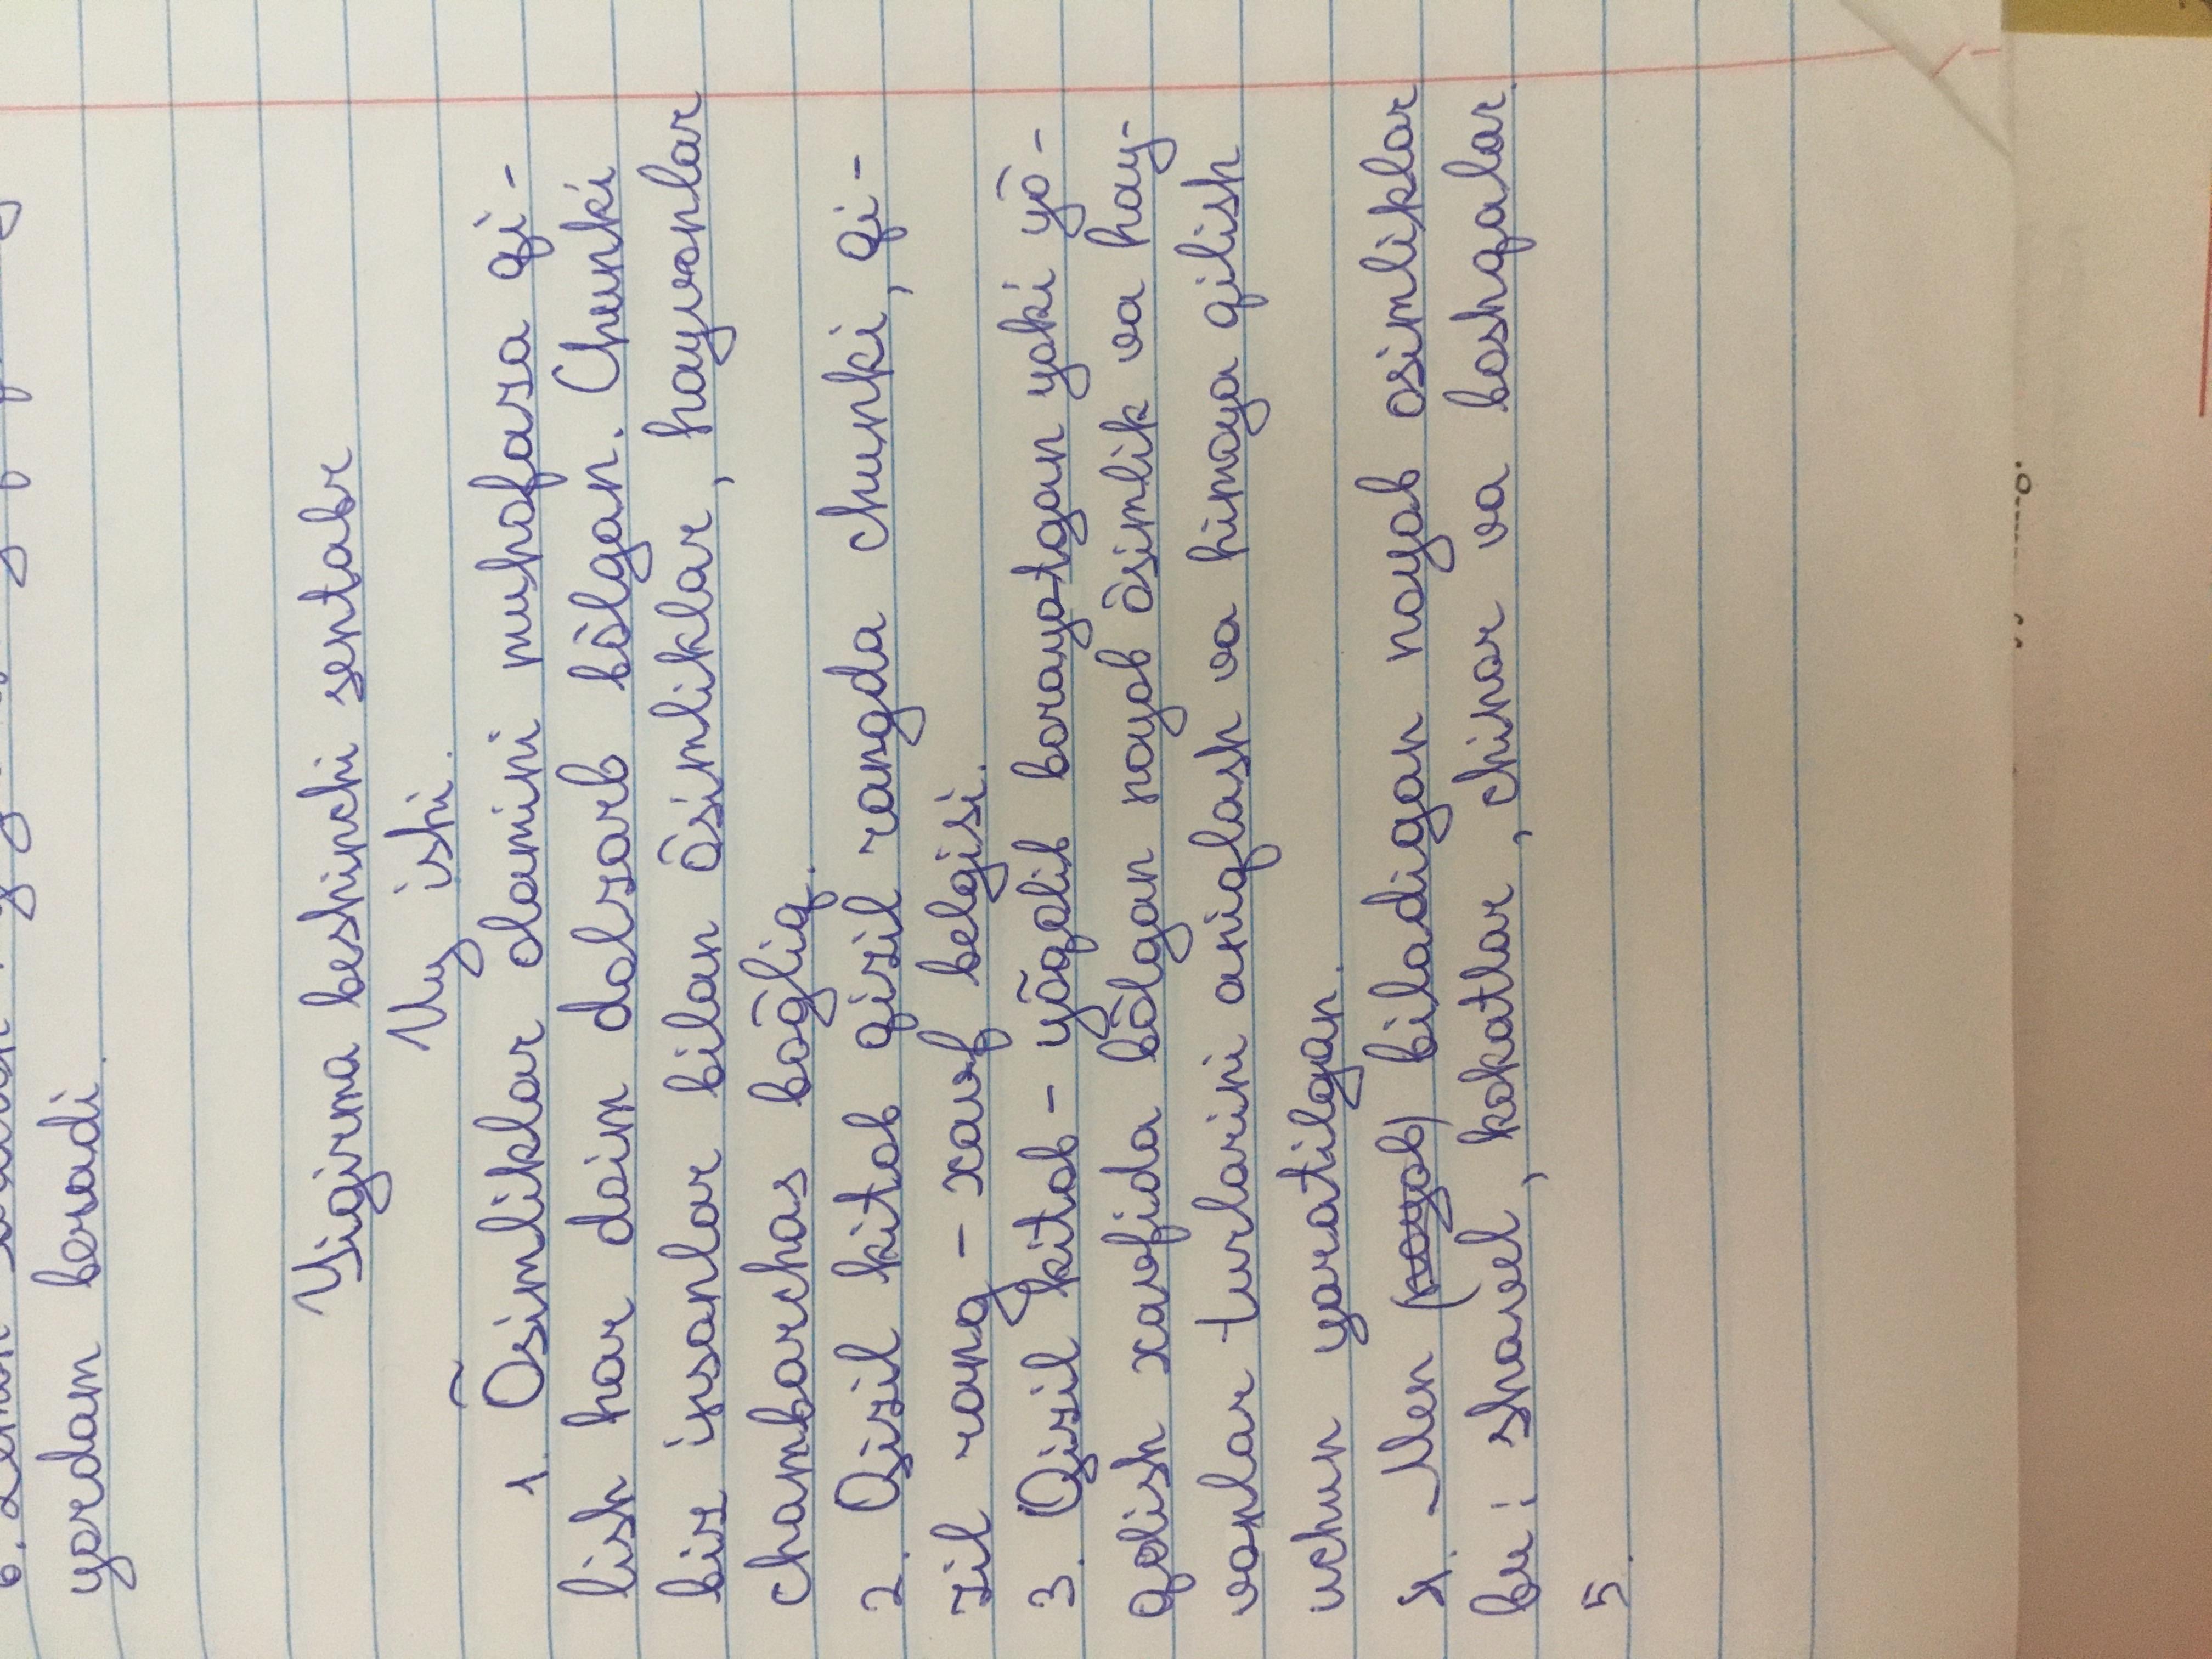 yordam beradi.
Yigirma beshinchi sentabr
Uy ishi.
1. Õsimliklar olamini muhofaza qi-
lish har doim dolzarb bõlgan. Chunki
biz insonlar bilan õsimliklar, hayvonlar
chambarchas boğliq.
2. Qizil kitob qizil rangda chunki, qi-
zil rang - xavf belgisi.
3. Qizil kitob - yõqolib borayotgan yoki yõ-
qolish xavfida bõlgan noyob õsimlik va hay-
vonlar turlarini aniqlash va himoya qilish
uchun yaratilgan.
4. Men (noyob) biladigan noyob osimliklar
bu: shovel, kokatlar, chinor va boshqalar.
5.